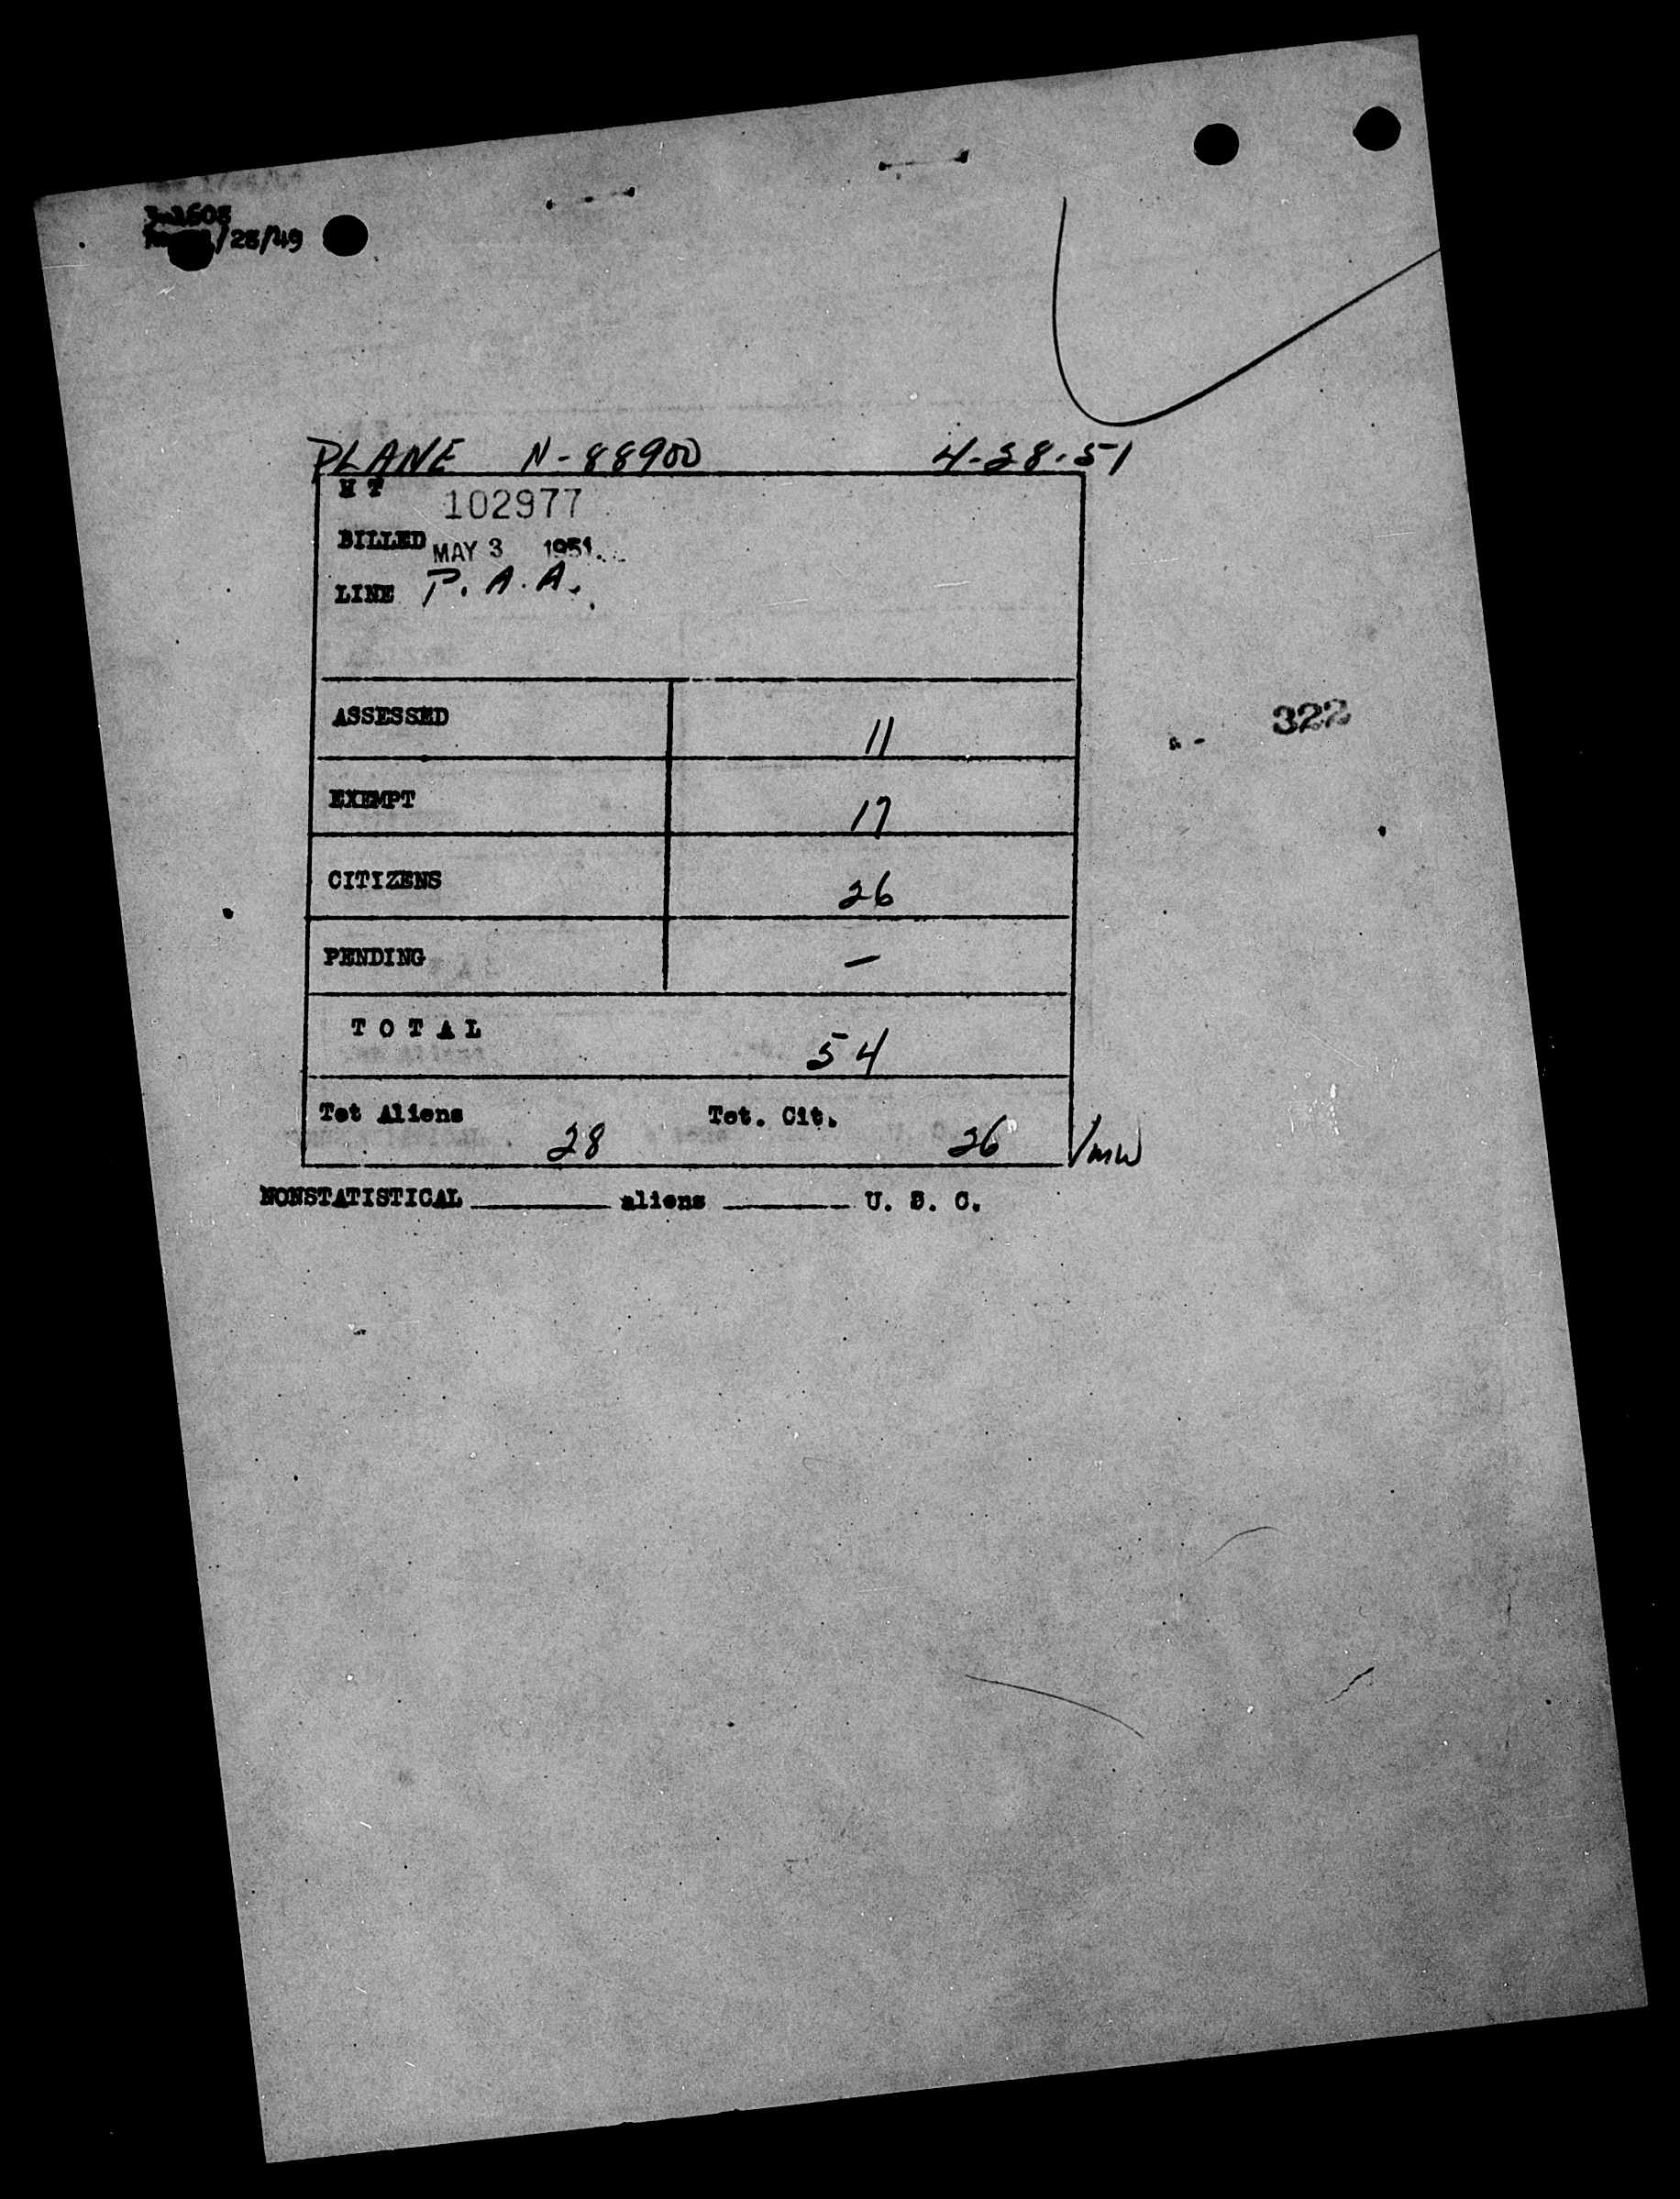 /25/49
PLANE N-88900 4-28-51
H T 102977
BILLED MAY 3 1951
LINE P. A. A.
ASSESSED 11
322
EXEMPT 17
CITIZENS 26
PENDING —
TOTAL 54
Tot Aliens 28 Tot. Cit. 26 /mw
NONSTATISTICAL ______ aliens ______ U. S. C.